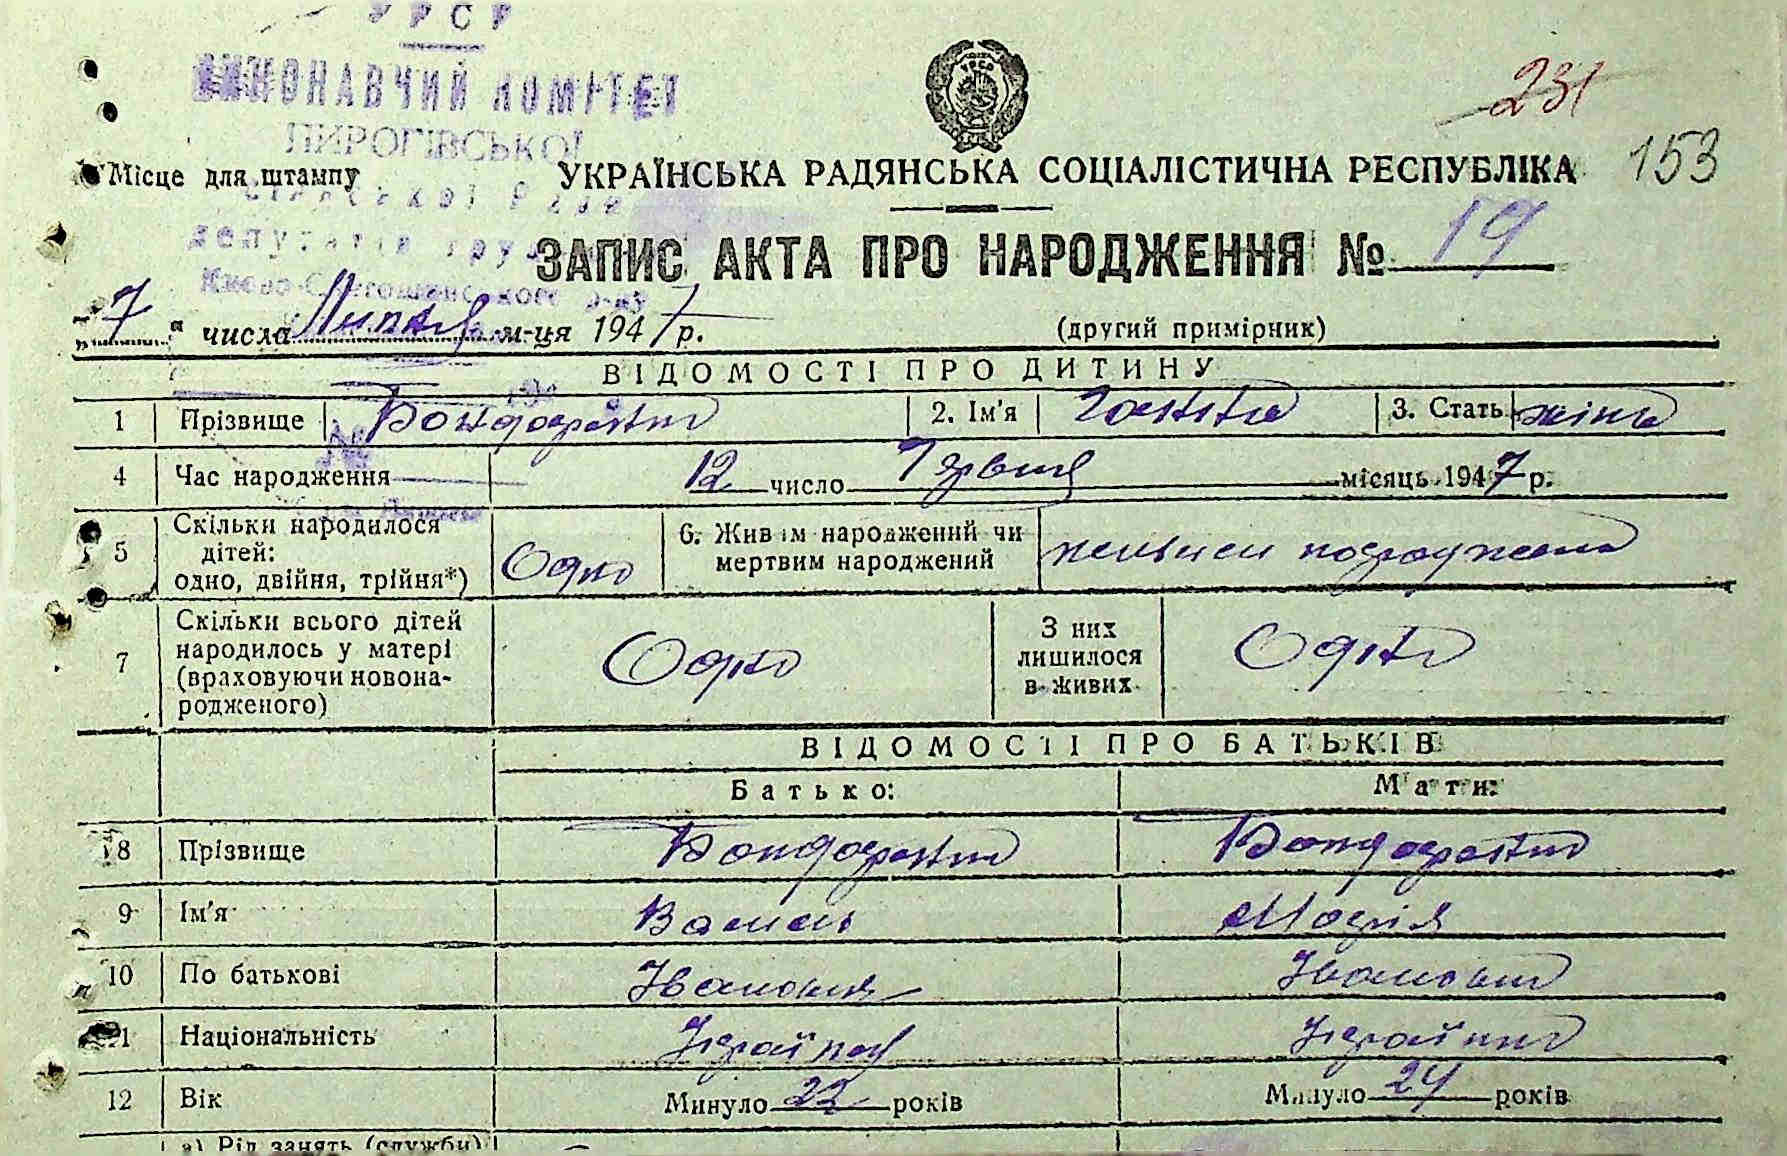 УРСР
ВИКОНАВЧИЙ КОМІТЕТ
ПИРОГІВСЬКОЇ
сільської Ради
депутатів труд
Києво-Святошинського р-ну
231
153
Місце для штампу
УРСР
УКРАЇНСЬКА РАДЯНСЬКА СОЦІАЛІСТИЧНА РЕСПУБЛІКА
ЗАПИС АКТА ПРО НАРОДЖЕННЯ № 19
"7" числа Липня м-ця 1947 р. (другий примірник)
ВІДОМОСТІ ПРО ДИТИНУ
1 Прізвище 2. Ім'я Ганна 3. Стать жіно
4 Час народження 12 число Червня місяць 1947 р.
5 Скільки народилося дітей: одно, двійня, трійня*) Одно 6. Живим народжений чи мертвим народжений
7 Скільки всього дітей народилось у матері (враховуючи новонародженого) Одно З них лишилося в живих Одно
ВІДОМОСТІ ПРО БАТЬКІВ
Батько: Мати:
8 Прізвище
9 Ім'я Василь Марія
10 По батькові Іванович
11 Національність
12 Вік Минуло 22 років Минуло 24 років
а) Рід занять (служби)